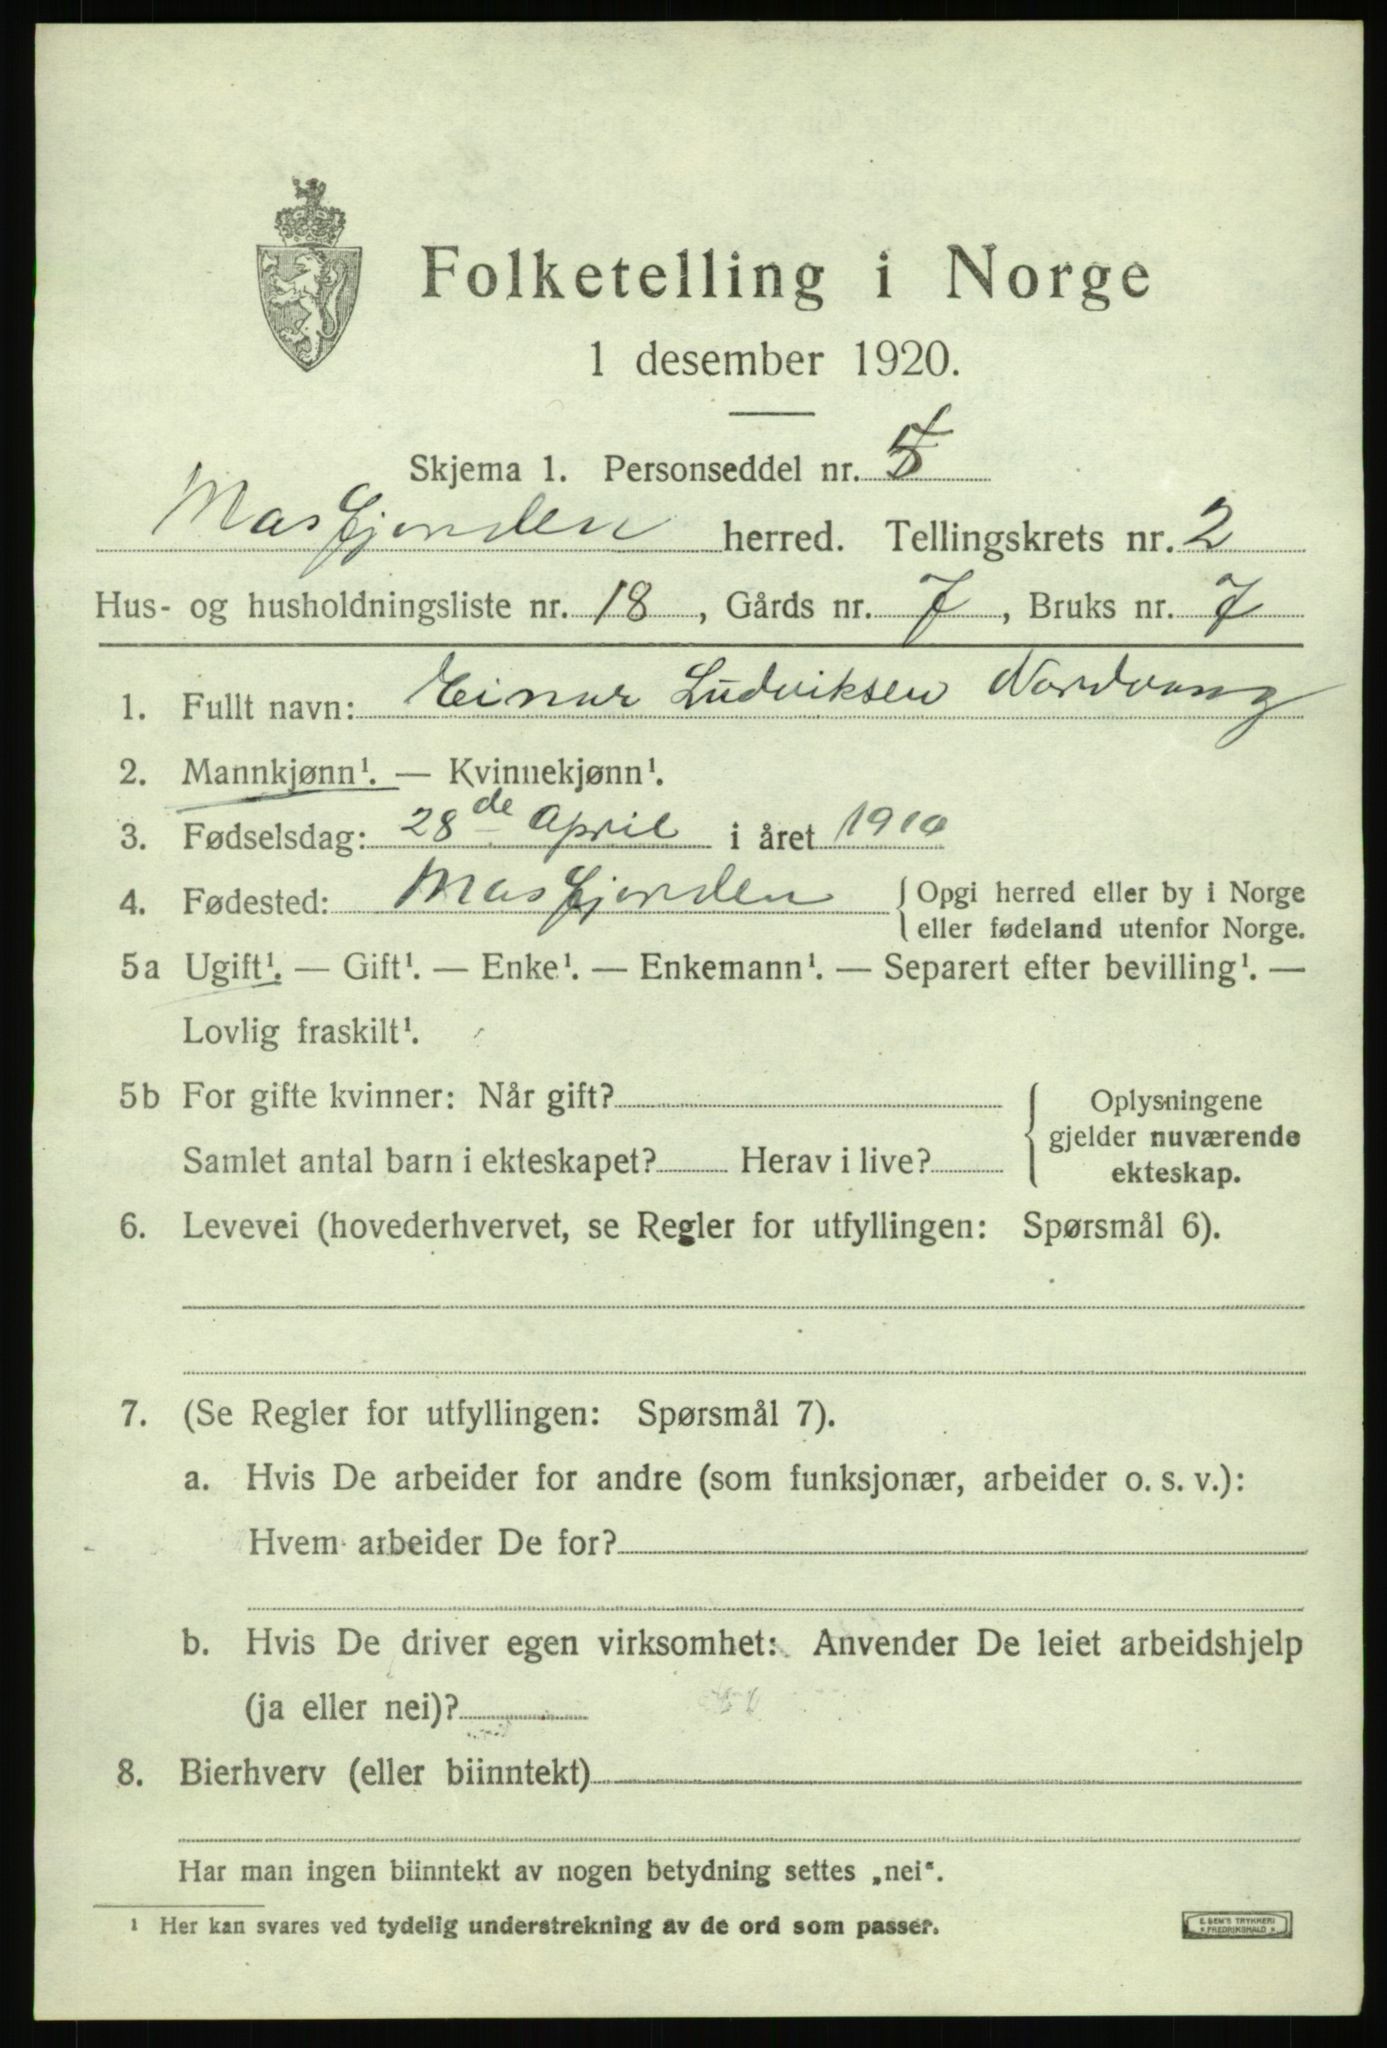 Folketelling i Norge
1 desember 1920.
Skjema 1. Personseddel nr. 5
Masfjorden herred. Tellingskrets nr. 2
Hus- og husholdningsliste nr. 18, Gårds nr. 7, Bruks nr. 7
1. Fullt navn: Einar Ludviksen Nordvang
2. Mannkjønn¹. — Kvinnekjønn¹.
3. Fødselsdag: 28de April i året 1910
4. Fødested: Masfjorden { Opgi herred eller by i Norge
eller fødeland utenfor Norge.
5a Ugift¹. — Gift¹. — Enke¹. — Enkemann¹. — Separert efter bevilling¹. —
Lovlig fraskilt¹.
5b For gifte kvinner: Når gift? { Oplysningene
gjelder nuværende
Samlet antal barn i ekteskapet? Herav i live? ekteskap.
6. Levevei (hovederhvervet, se Regler for utfyllingen: Spørsmål 6).
7. (Se Regler for utfyllingen: Spørsmål 7).
a. Hvis De arbeider for andre (som funksjonær, arbeider o. s. v.):
Hvem arbeider De for?
b. Hvis De driver egen virksomhet: Anvender De leiet arbeidshjelp
(ja eller nei)?
8. Bierhverv (eller biinntekt)
Har man ingen biinntekt av nogen betydning settes „nei“.
¹ Her kan svares ved tydelig understrekning av de ord som passer.
E. SEM'S TRYKKERI
FREDRIKSHALD